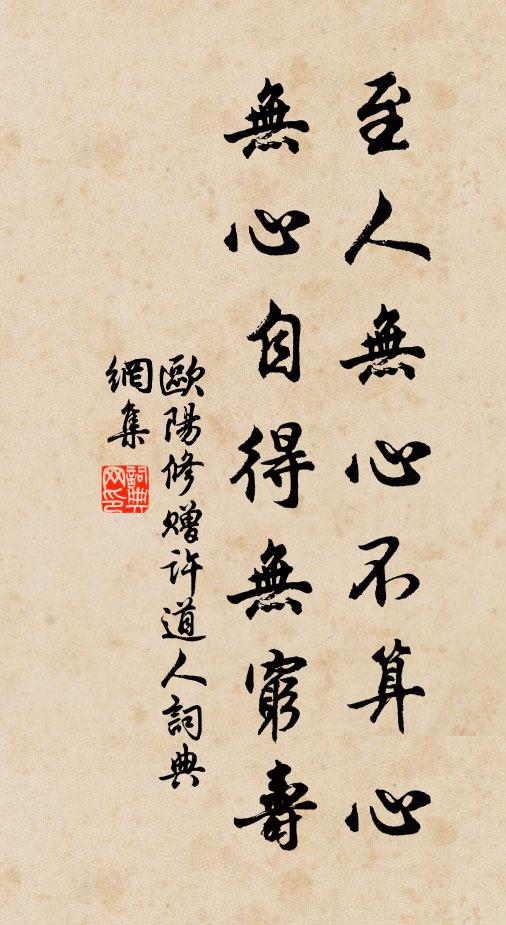 至人無心不算心
無心自得無窮壽
歐陽修贈許道人詞典
網集
詞典網印